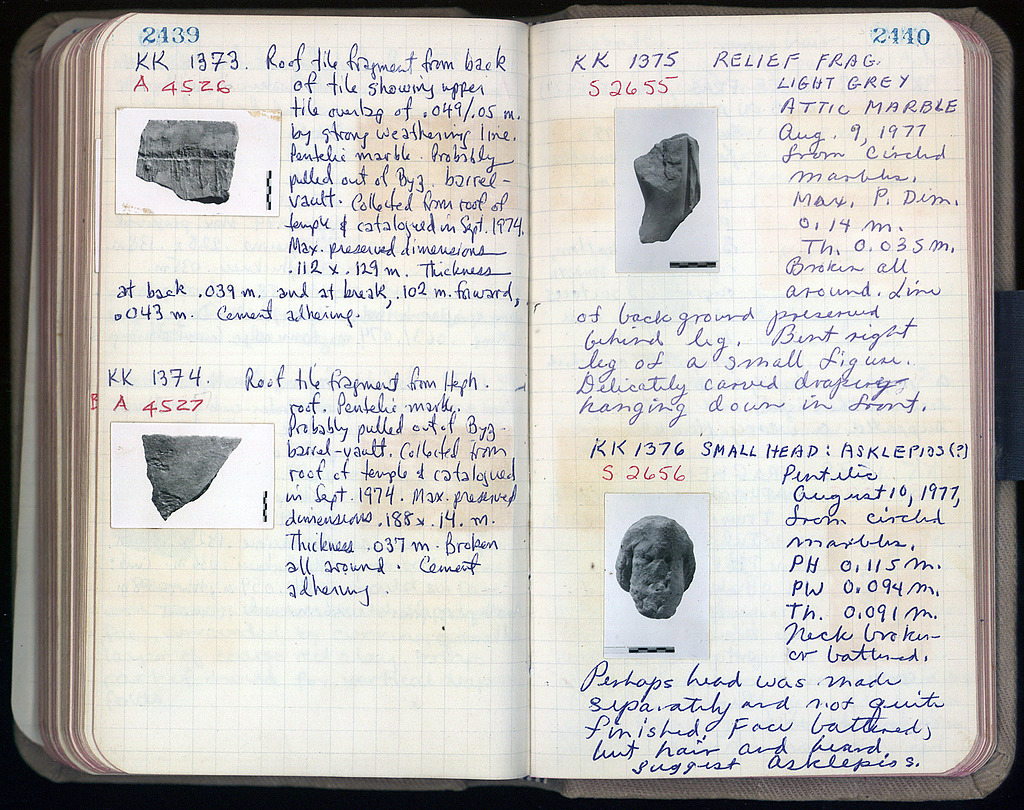 2439
KK 1373. Roof tile fragment from back
A 4526
of tile showing upper
tile overlap of .049/.05 m.
by strong weathering line.
Pentelic marble. Probably
pulled out of Byz. barrel-
vault. Collected from roof of
temple & catalogued in Sept. 1974.
Max. preserved dimensions
.112 x .129 m. Thickness
at back .039 m. and at break, .102 m. forward,
.043 m. Cement adhering.
KK 1374. Roof tile fragment from Heph.
B A 4527
roof. Pentelic marble.
Probably pulled out of Byz.
barrel-vault. Collected from
roof of temple & catalogued
in Sept. 1974. Max. preserved
dimensions .188 x .14 m.
Thickness .037 m. Broken
all around. Cement
adhering.
2440
KK 1375 RELIEF FRAG.
S 2655
LIGHT GREY
ATTIC MARBLE
Aug. 9, 1977
from circled
marbles.
Max. P. Dim.
0.14 m.
Th. 0.035 m.
Broken all
around. Line
of background preserved
behind leg. Bent right
leg of a small figure.
Delicately carved drapery
hanging down in front.
KK 1376 SMALL HEAD: ASKLEPIOS (?)
S 2656
Pentelic
August 10, 1977,
from circled
marbles.
PH 0.115 m.
PW 0.094 m.
Th. 0.091 m.
Neck broken
or battered.
Perhaps head was made
separately and not quite
finished. Face battered,
but hair and beard
suggest Asklepios.